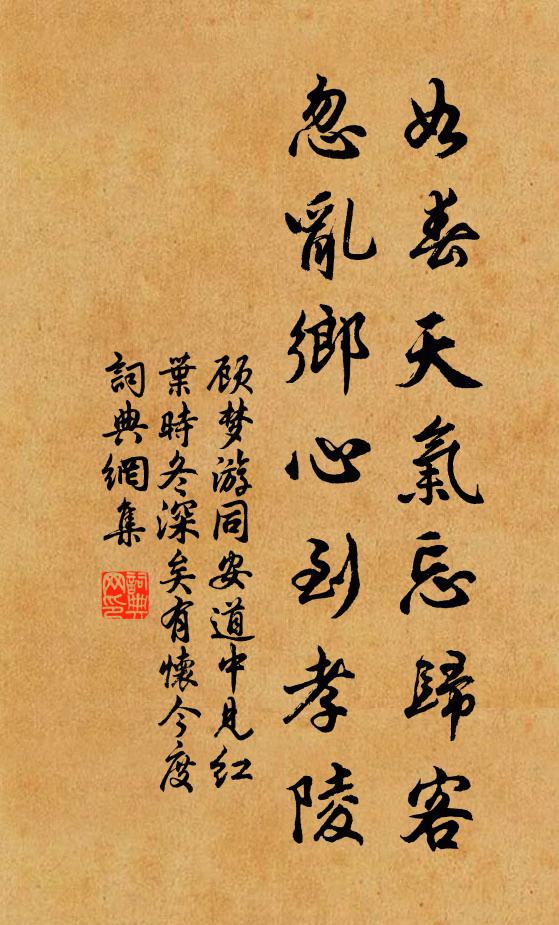 如春天氣忘歸客
忽亂鄉心到孝陵
顾梦游同安道中見红
葉時冬深矣有懷今度
詞典網集
詞典网印